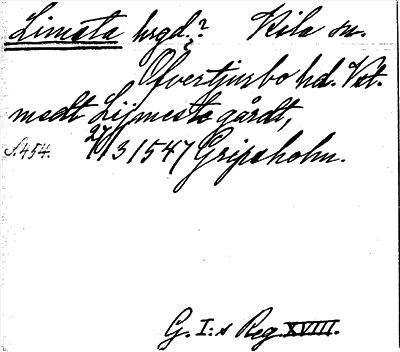 Limsta hrgd.? Kila sn.
Öfvertjurbo hd. Vst.
medt Lijmesta gårdt,
S. 454. 27/3 1547 Gripsholm.
G. I:s Reg. XVIII.